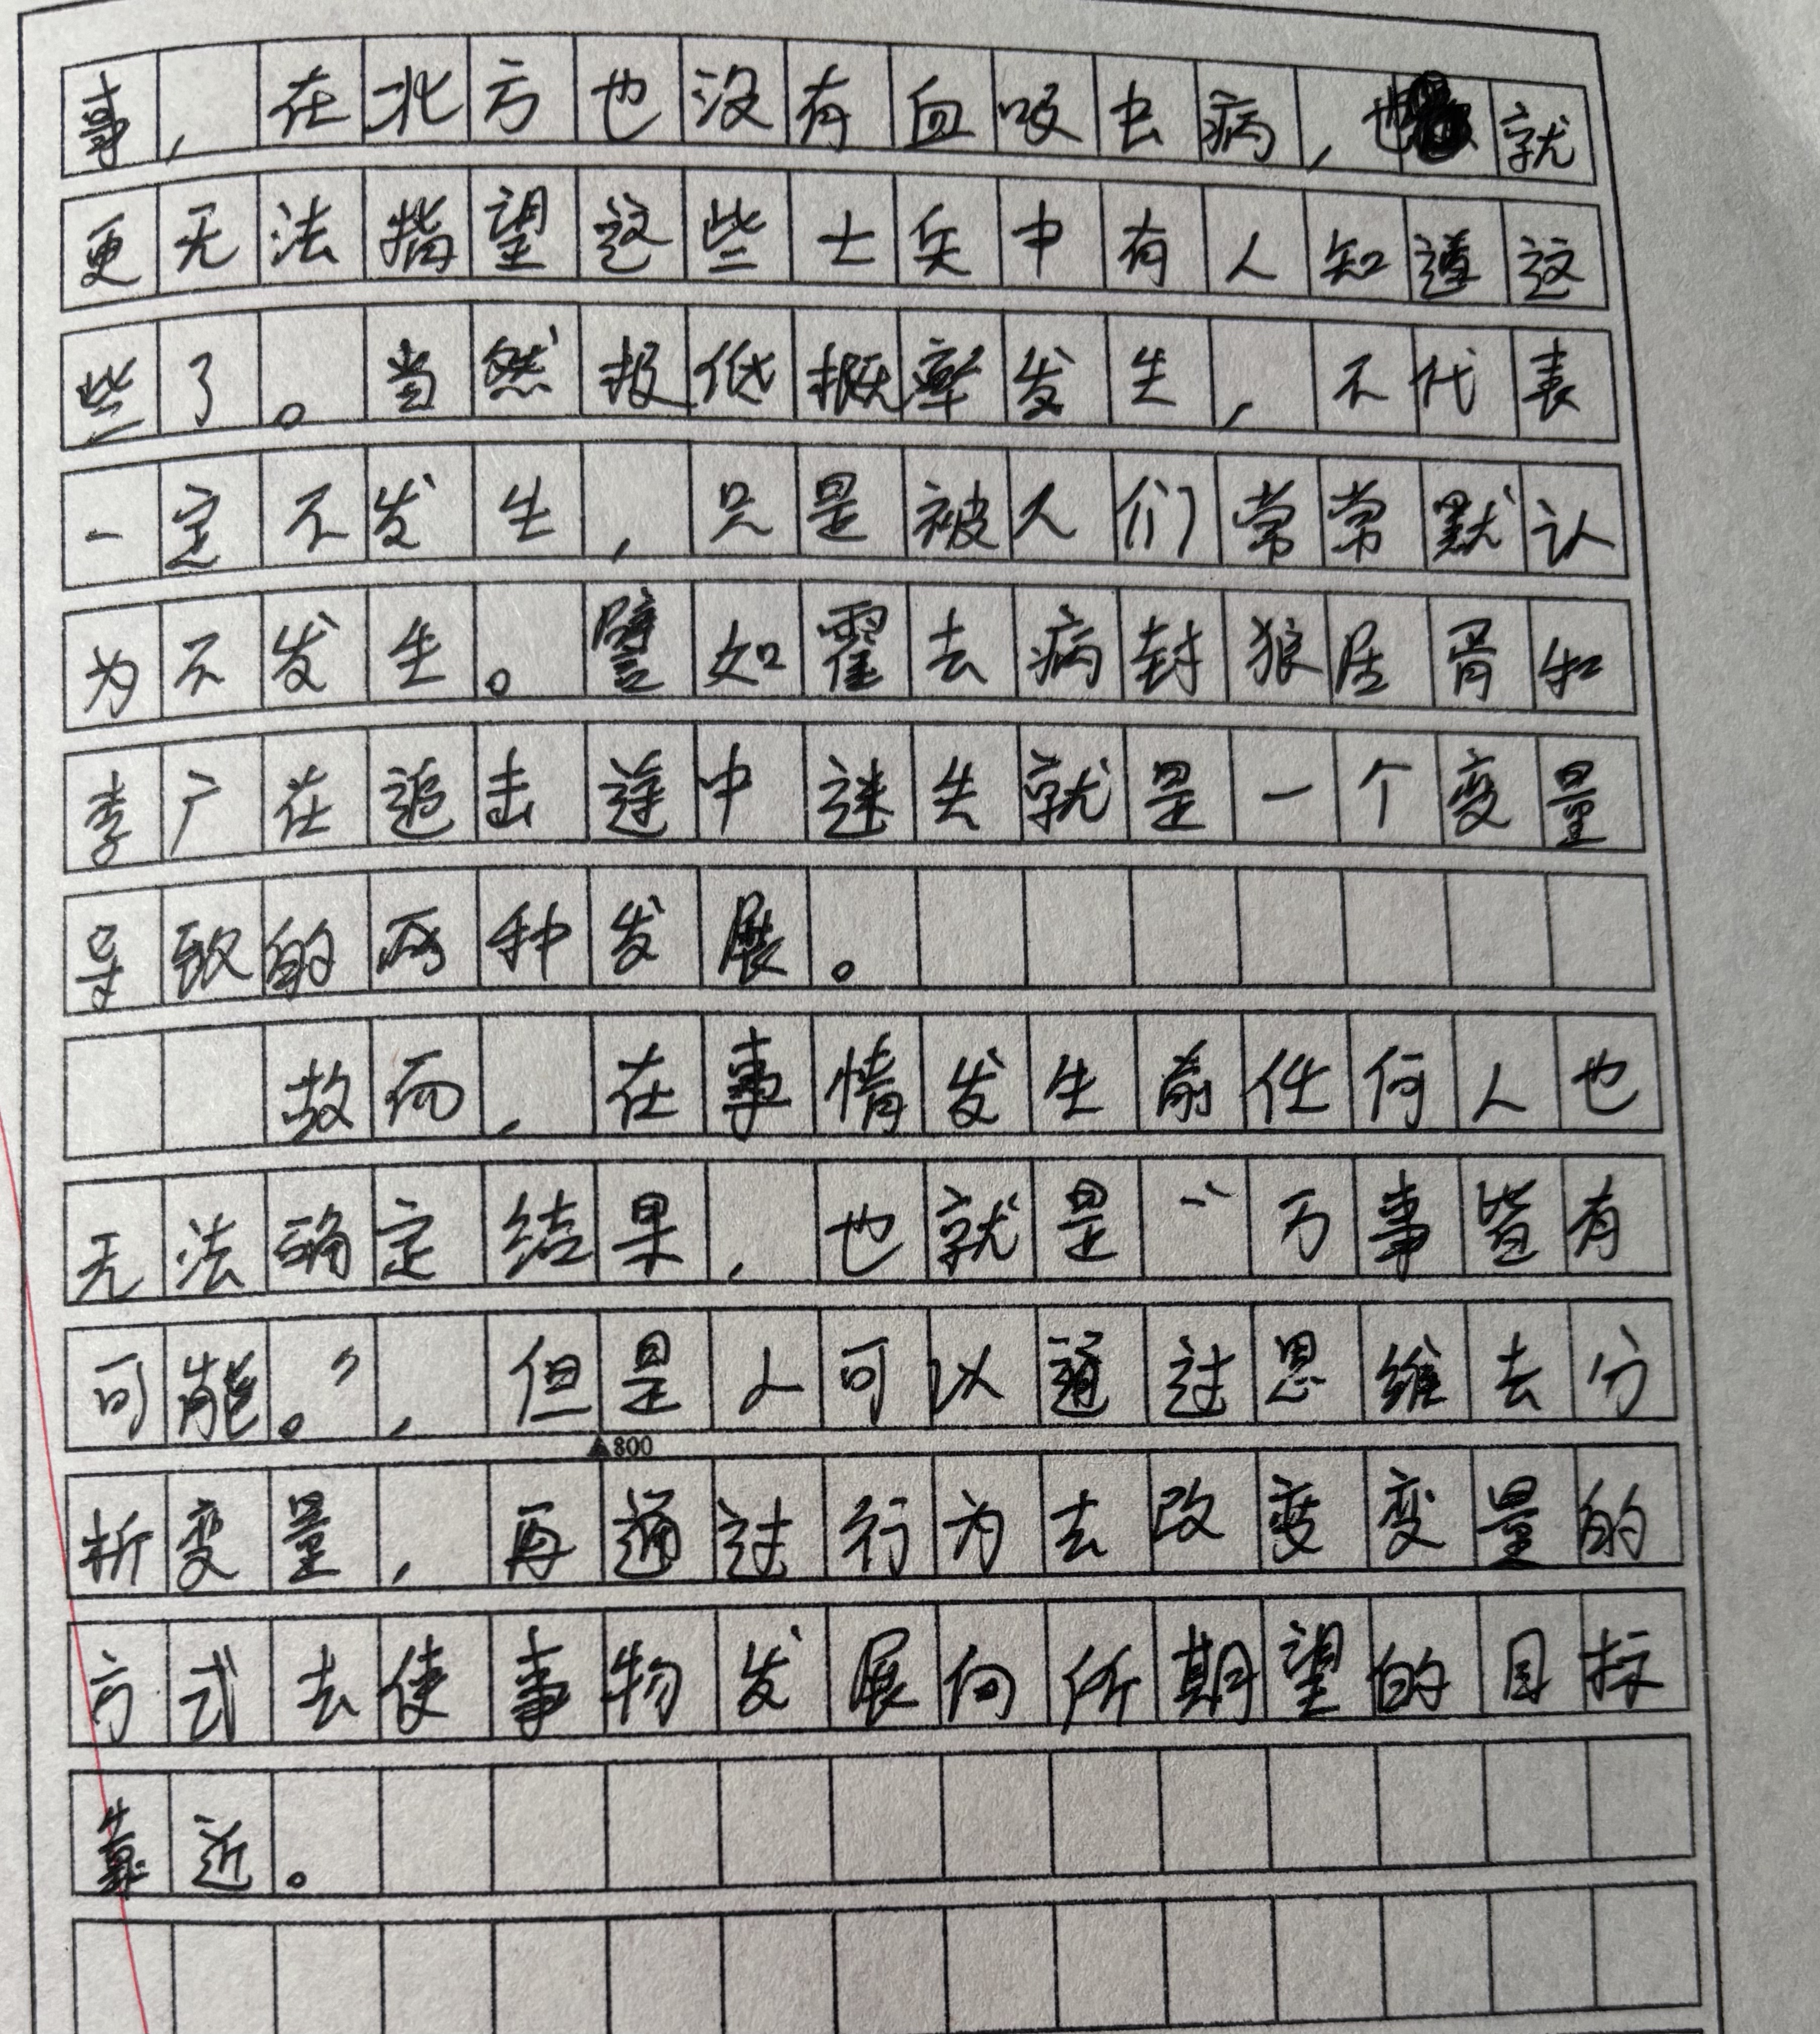 事，在北方也没有血吸虫病，也就
更无法指望这些士兵中有人知道这
些了。当然极低概率发生，不代表
一定不发生，只是被人们常常默认
为不发生。譬如霍去病封狼居胥和
李广在追击途中迷失就是一个变量
导致的两种发展。
故而，在事情发生前任何人也
无法确定结果，也就是“万事皆有
可能。”，但是人可以通过思维去分
▲800
析变量，再通过行为去改变变量的
方式去使事物发展向所期望的目标
靠近。